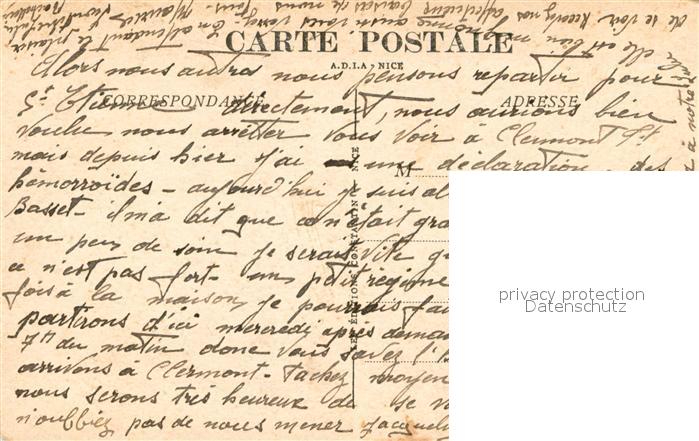 CARTE POSTALE
A.D.I.A - NICE
CORRESPONDANCE
ADRESSE
Alors nous autres nous pensons repartir pour
St Etienne directement, nous aurions bien
voulu nous arrêter vous voir à Clermont
mais depuis hier j'ai une déclaration des
hémorroïdes - aujourd'hui je suis al
Basset - il m'a dit que ce n'était gra
un peu de soin je serais vite gu
ce n'est pas fort - un petit régime
fois à la maison, je pourrais fai
partirons d'ici mercredi après demai
7h du matin donc vous savez l'h
arrivons à Clermont - Tachez moyen
nous serons très heureux de se v
n'oubliez pas de nous mener Jacquel
M
LES EDITIONS CONSTANTIN - NICE
de se voir. Recevez nos
elle est bien mignonne
En attendant le plaisir
privacy protection
Datenschutz